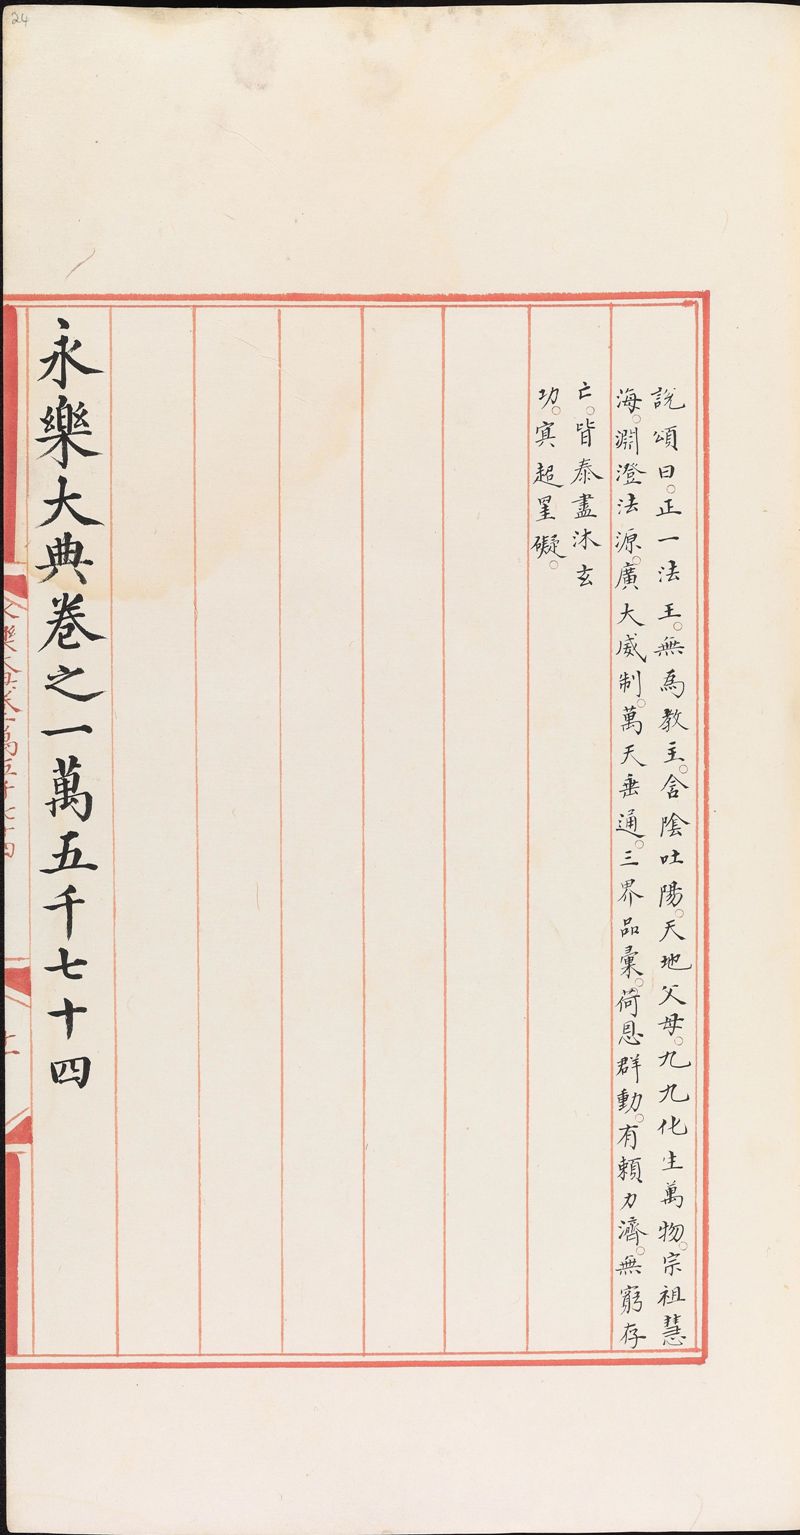 說頌曰。正一法王。無爲教主。含陰吐陽。天地父母。九九化生萬物。宗祖慧
海。淵澄法源。廣大威制。萬天垂通。三界品彙。荷恩群動。有賴力濟。無窮存
亡。皆泰盡沐玄
功。冥超罣礙。
永樂大典卷之一萬五千七十四
24